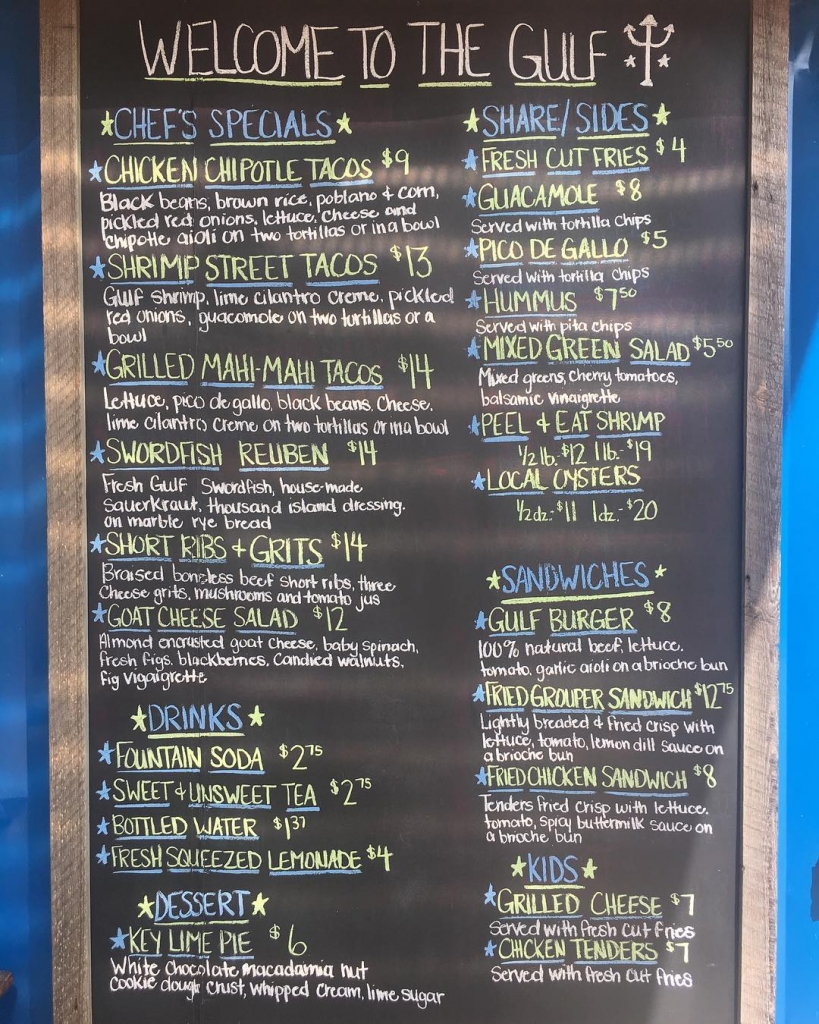 WELCOME TO THE GULF
CHEF'S SPECIALS
CHICKEN CHIPOTLE TACOS $9
Black beans, brown rice, poblano & corn,
pickled red onions, lettuce, cheese and
chipotle aioli on two tortillas or in a bowl
SHRIMP STREET TACOS $13
Gulf shrimp, lime cilantro creme, pickled
red onions, guacamole on two tortillas or a
bowl
GRILLED MAHI-MAHI TACOS $14
Lettuce, pico de gallo, black beans, cheese,
lime cilantro creme on two tortillas or in a bowl
SWORDFISH REUBEN $14
Fresh Gulf Swordfish, house-made
sauerkraut, thousand island dressing.
on marble rye bread
SHORT RIBS + GRITS $14
Braised boneless beef short ribs, three
cheese grits, mushrooms and tomato jus
GOAT CHEESE SALAD $12
Almond encrusted goat cheese, baby spinach,
fresh figs, blackberries, candied walnuts,
fig vigaigrette
DRINKS
FOUNTAIN SODA $2.75
SWEET & UNSWEET TEA $2.75
BOTTLED WATER $1.37
FRESH SQUEEZED LEMONADE $4
DESSERT
KEY LIME PIE $6
White chocolate macadamia nut
cookie dough crust, whipped cream, lime sugar
SHARE/SIDES
FRESH CUT FRIES $4
GUACAMOLE $8
Served with tortilla chips
PICO DE GALLO $5
Served with tortilla chips
HUMMUS $7.50
Served with pita chips
MIXED GREEN SALAD $5.50
Mixed greens, cherry tomatoes,
balsamic vinaigrette
PEEL & EAT SHRIMP
1/2 lb. $12 1 lb. $19
LOCAL OYSTERS
1/2 dz.- $11 1dz.- $20
SANDWICHES
GULF BURGER $8
100% natural beef, lettuce,
tomato, garlic aioli on a brioche bun
FRIED GROUPER SANDWICH $12.75
Lightly breaded & fried crisp with
lettuce, tomato, lemon dill sauce on
a brioche bun
FRIED CHICKEN SANDWICH $8
Tenders fried crisp with lettuce,
tomato, spicy buttermilk sauce on
a brioche bun
KIDS
GRILLED CHEESE $7
Served with fresh cut fries
CHICKEN TENDERS $7
Served with fresh cut fries